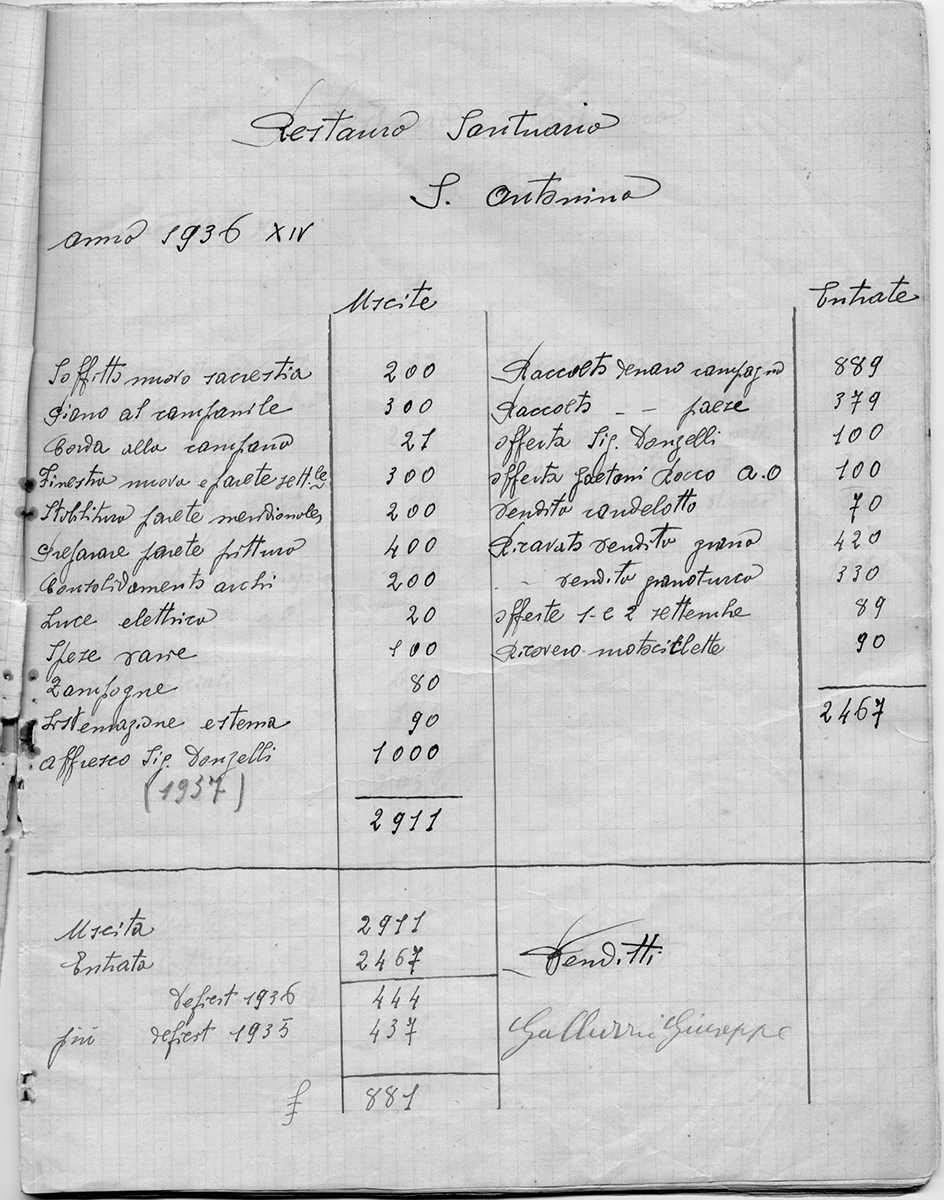 Restauro Santuario
S. Antonino
anno 1936 XIV
Uscite Entrate
Soffitto nuovo sacrestia 200 Raccolta denaro campagna 889
Piano al campanile 300 Raccolta - - paese 379
Corda alla campana 21 offerta Sig. Donzelli 100
Finestra nuova e parete sett.le 300 offerta Gaetani Rocco A.O 100
Stabilitura parete meridionale 200 Vendita candelotto 70
Preparare parete pittura 400 Ricavato vendita grano 420
Consolidamento archi 200 - vendita granoturco 330
Luce elettrica 20 offerte 1 e 2 settembre 89
Spese varie 100 Ricovero motociclette 90
Zampogne 80
Sistemazione esterna 90 2467
affresco Sig. Donzelli 1000
(1937)
2911
Uscita 2911
Entrata 2467 Venditti
deficit 1936 444
più deficit 1935 437 Giuseppe
£ 881